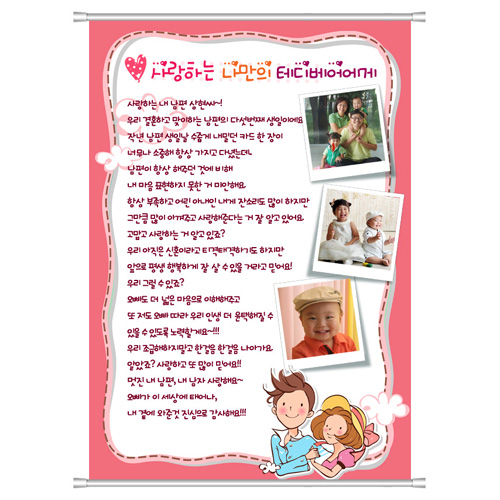 사랑하는 나만의 테디베어에게
사랑하는 내 남편 상현씨~!
우리 결혼하고 맞이하는 남편의 다섯번째 생일이에요
작년 남편 생일날 수줍게 내밀던 카드 한 장이
너무나 소중해 항상 가지고 다녔는데..
남편이 항상 해주던 것에 비해
내 마음 표현하지 못한 거 미안해요.
항상 부족하고 어린 아내인 내게 잔소리도 많이 하지만
그만큼 많이 아껴주고 사랑해준다는 거 잘 알고 있어요.
고맙고 사랑하는 거 알고 있죠?
우리 아직은 신혼이라고 티격태격하기도 하지만
앞으로 평생 행복하게 잘 살 수 있을 거라고 믿어요!
우리 그럴 수 있죠?
오빠도 더 넓은 마음으로 이해해주고
또 저도 오빠 따라 우리 인생 더 윤택해질 수
있을 수 있도록 노력할게요~!!!
우리 조급해하지말고 한걸음 한걸음 나아가요.
알았죠? 사랑하고 또 많이 믿어요!!
멋진 내 남편, 내 남자 사랑해요~
오빠가 이 세상에 태어나,
내 곁에 와준것 진심으로 감사해요!!!